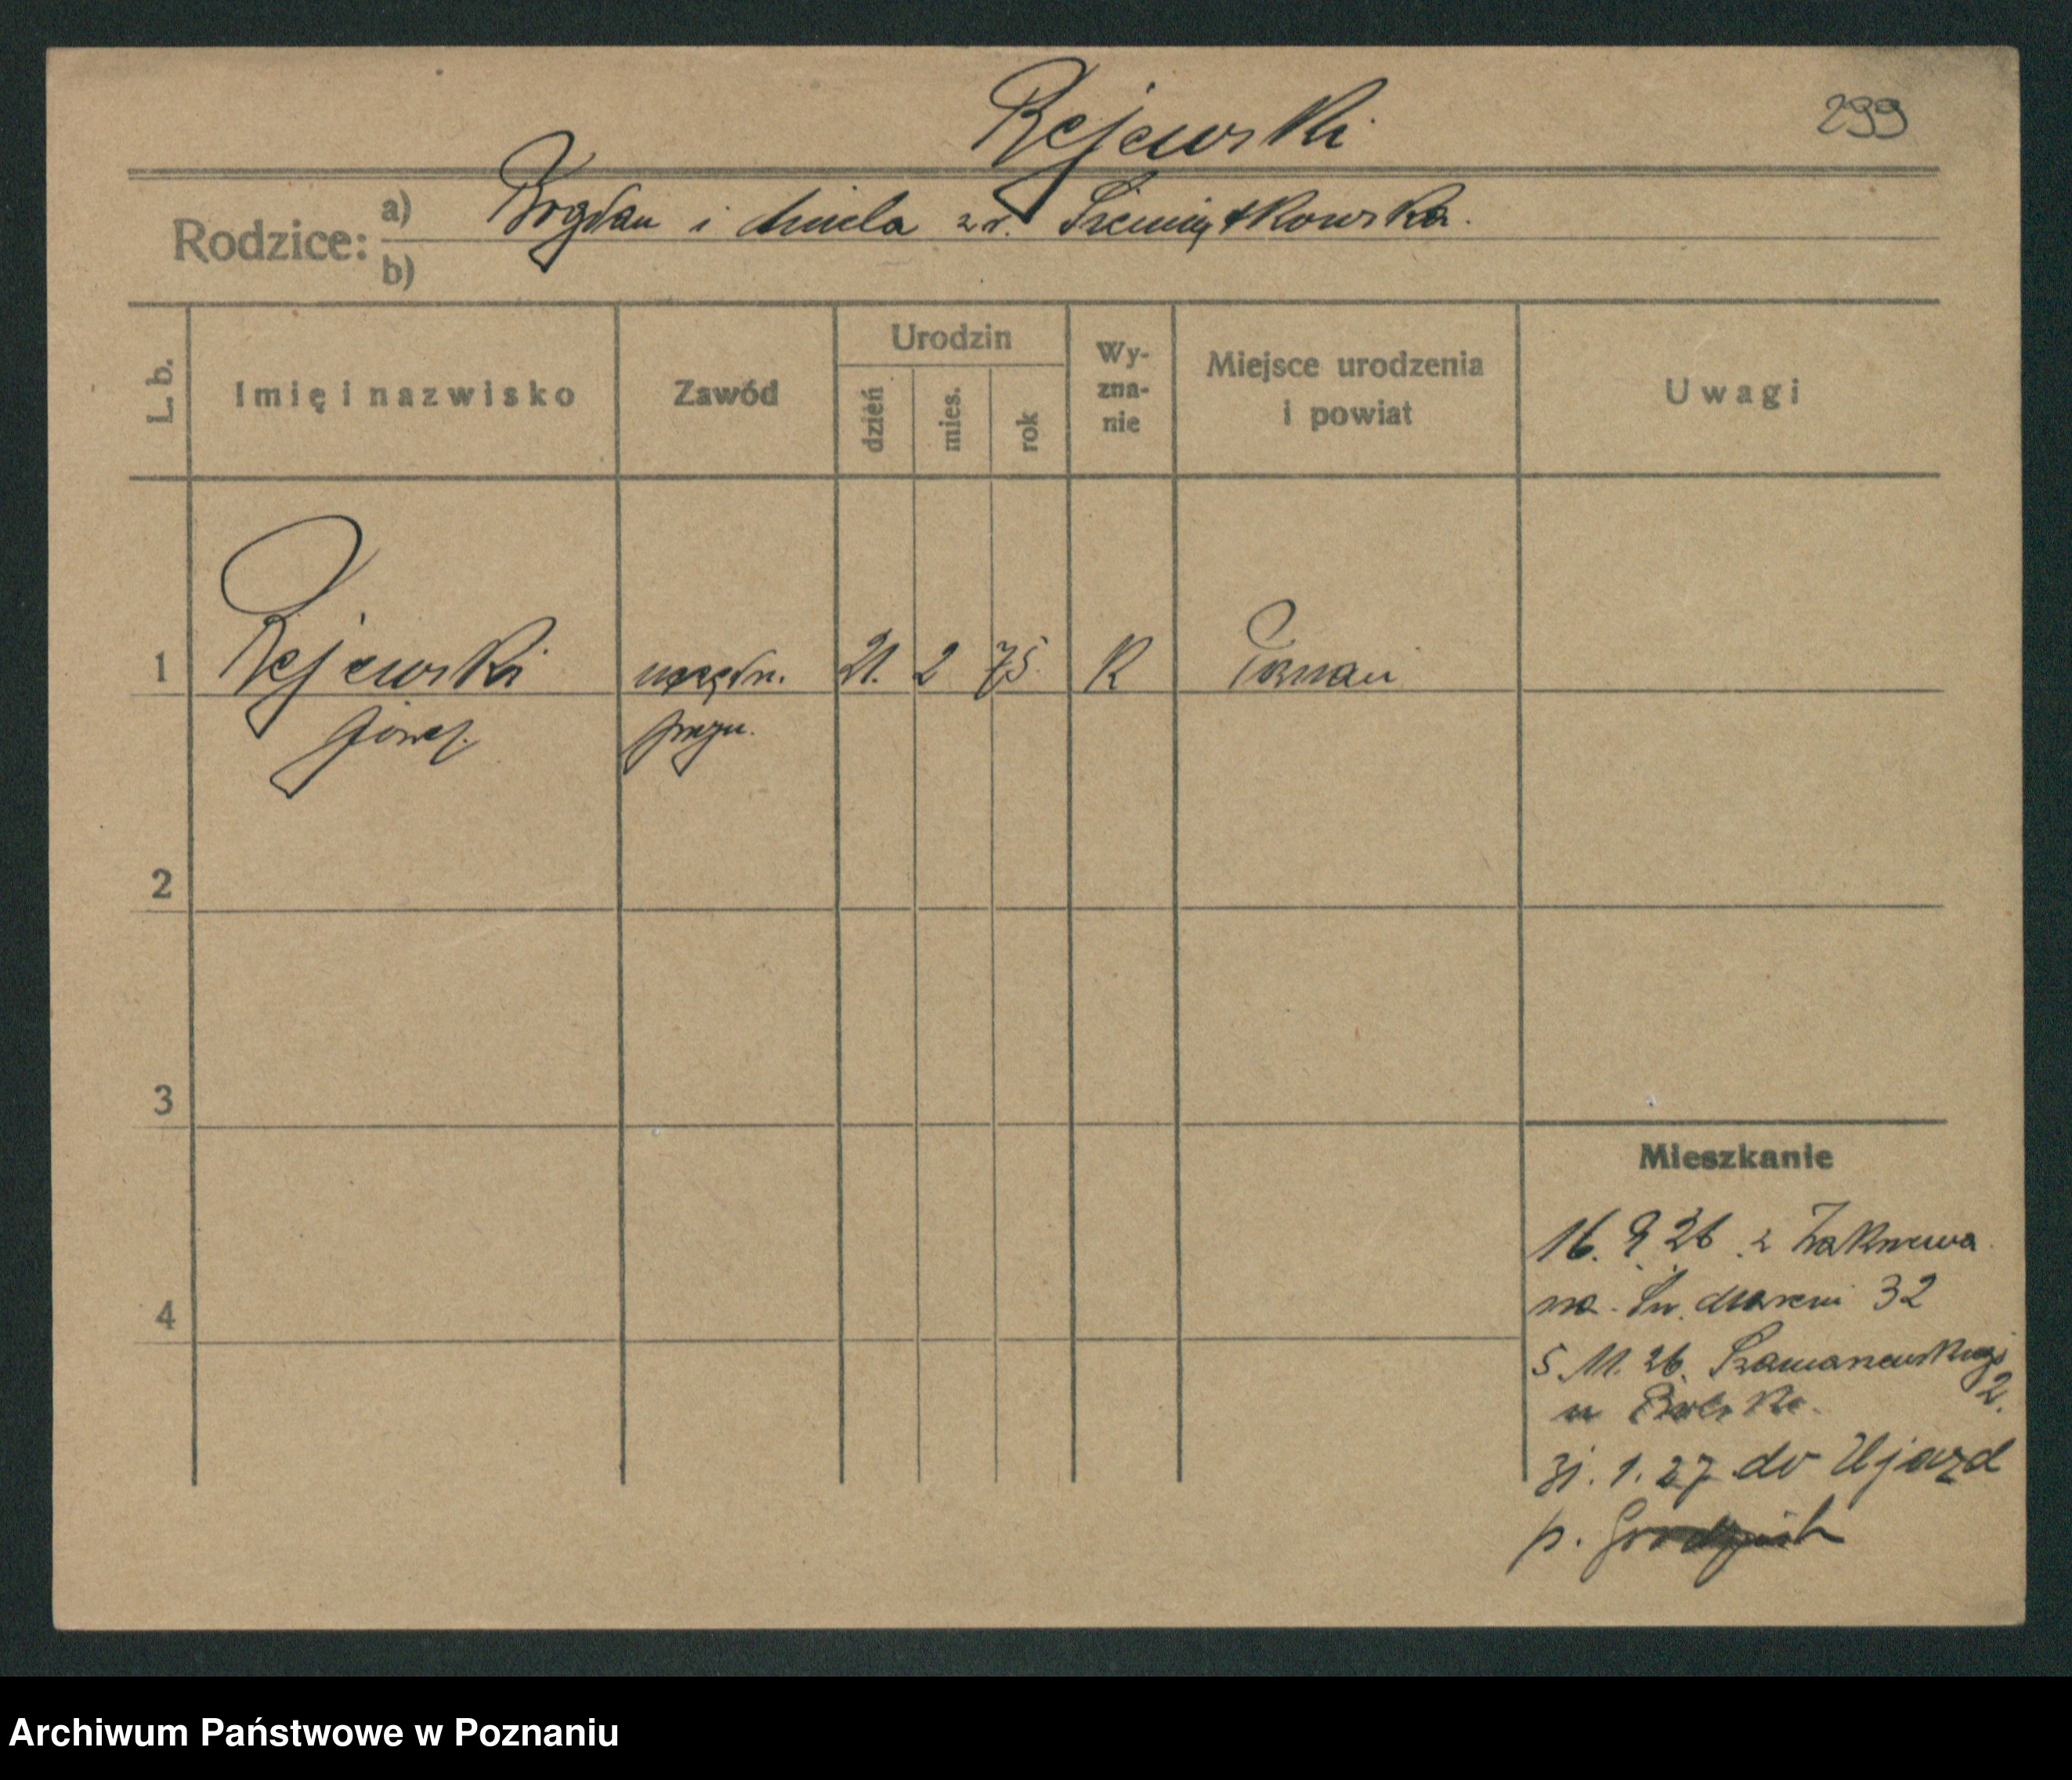 Rejewski
299
Rodzice: a) Bogdan i Aniela z d. Siemiątkowska.
b)
L. b.
Imię i nazwisko
Zawód
Urodzin
dzień
mies.
rok
Wy-
zna-
nie
Miejsce urodzenia
i powiat
Uwagi
1 Rejewski urzędn. 21. 2 75. K Poznań
Józef.
2
3
4
Mieszkanie
16. 9. 26 z
na Św. Marcin 32
5. 11. 26. 2.
u
31. 1. 27 do Ujazd
p. Grodzisk
Archiwum Państwowe w Poznaniu